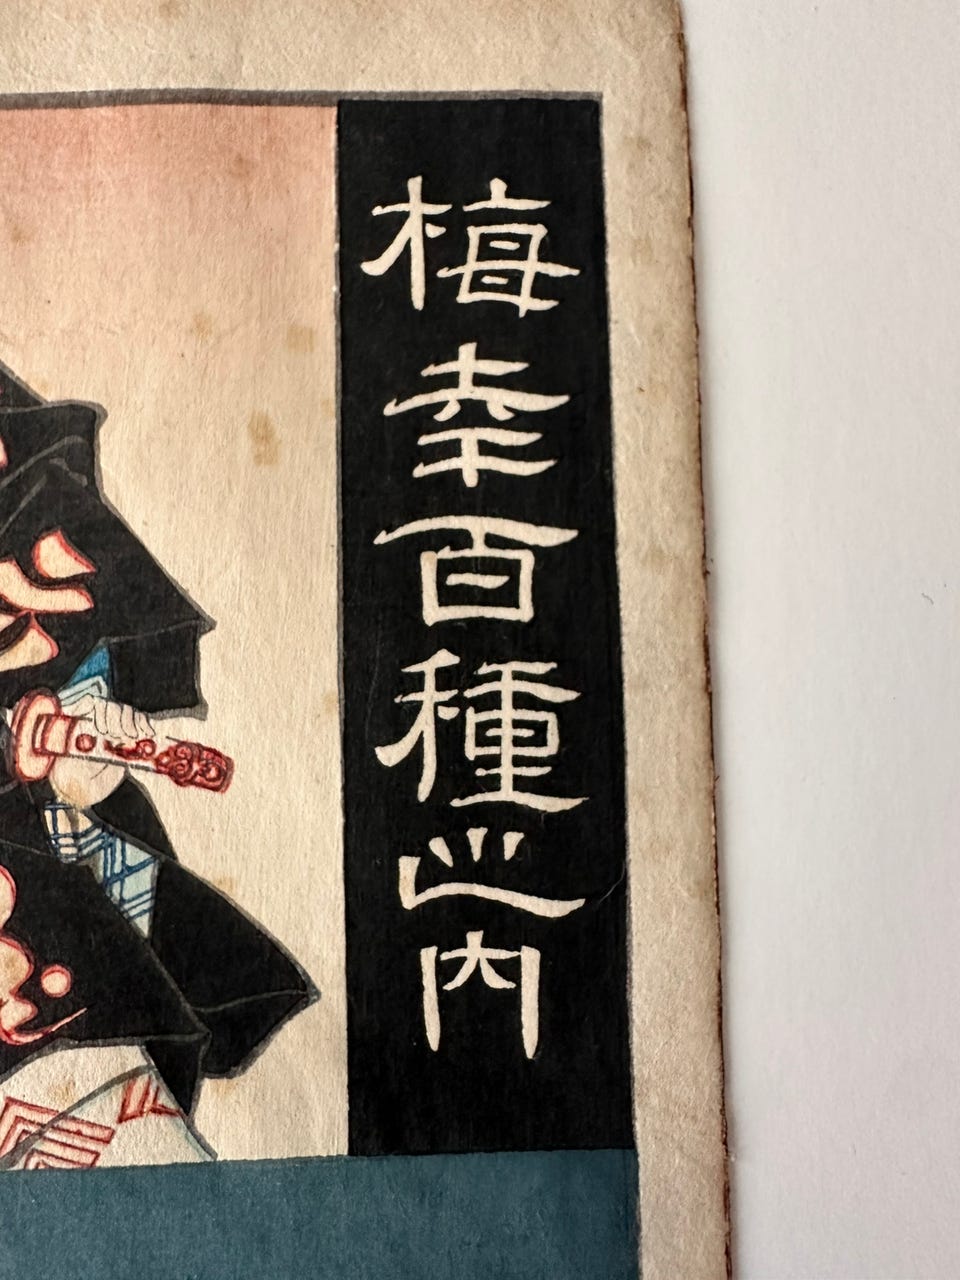 梅幸百種之内